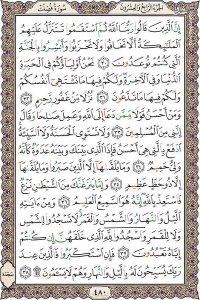 سُورَةُ فُصِّلَتْ
الجزء الرابع والعشرون
إِنَّ ٱلَّذِينَ قَالُوا۟ رَبُّنَا ٱللَّهُ ثُمَّ ٱسْتَقَـٰمُوا۟ تَتَنَزَّلُ عَلَيْهِمُ
ٱلْمَلَـٰٓئِكَةُ أَلَّا تَخَافُوا۟ وَلَا تَحْزَنُوا۟ وَأَبْشِرُوا۟ بِٱلْجَنَّةِ
ٱلَّتِى كُنتُمْ تُوعَدُونَ ٣٠ نَحْنُ أَوْلِيَآؤُكُمْ فِى ٱلْحَيَوٰةِ
ٱلدُّنْيَا وَفِى ٱلْـَٔاخِرَةِ وَلَكُمْ فِيهَا مَا تَشْتَهِىٓ أَنفُسُكُمْ
وَلَكُمْ فِيهَا مَا تَدَّعُونَ ٣١ نُزُلًا مِّنْ غَفُورٍ رَّحِيمٍ ٣٢
وَمَنْ أَحْسَنُ قَوْلًا مِّمَّن دَعَآ إِلَى ٱللَّهِ وَعَمِلَ صَـٰلِحًا وَقَالَ
إِنَّنِى مِنَ ٱلْمُسْلِمِينَ ٣٣ وَلَا تَسْتَوِى ٱلْحَسَنَةُ وَلَا ٱلسَّيِّئَةُ
ٱدْفَعْ بِٱلَّتِى هِىَ أَحْسَنُ فَإِذَا ٱلَّذِى بَيْنَكَ وَبَيْنَهُۥ عَدَٰوَةٌ كَأَنَّهُۥ
وَلِىٌّ حَمِيمٌ ٣٤ وَمَا يُلَقَّىٰهَآ إِلَّا ٱلَّذِينَ صَبَرُوا۟ وَمَا يُلَقَّىٰهَآ
إِلَّا ذُو حَظٍّ عَظِيمٍ ٣٥ وَإِمَّا يَنزَغَنَّكَ مِنَ ٱلشَّيْطَـٰنِ نَزْغٌ
فَٱسْتَعِذْ بِٱللَّهِ إِنَّهُۥ هُوَ ٱلسَّمِيعُ ٱلْعَلِيمُ ٣٦ وَمِنْ ءَايَـٰتِهِ
ٱلَّيْلُ وَٱلنَّهَارُ وَٱلشَّمْسُ وَٱلْقَمَرُ لَا تَسْجُدُوا۟ لِلشَّمْسِ
وَلَا لِلْقَمَرِ وَٱسْجُدُوا۟ لِلَّهِ ٱلَّذِى خَلَقَهُنَّ إِن كُنتُمْ
إِيَّاهُ تَعْبُدُونَ ٣٧ فَإِنِ ٱسْتَكْبَرُوا۟ فَٱلَّذِينَ عِندَ
رَبِّكَ يُسَبِّحُونَ لَهُۥ بِٱلَّيْلِ وَٱلنَّهَارِ وَهُمْ لَا يَسْـَٔمُونَ ۩ ٣٨
٤٨٠